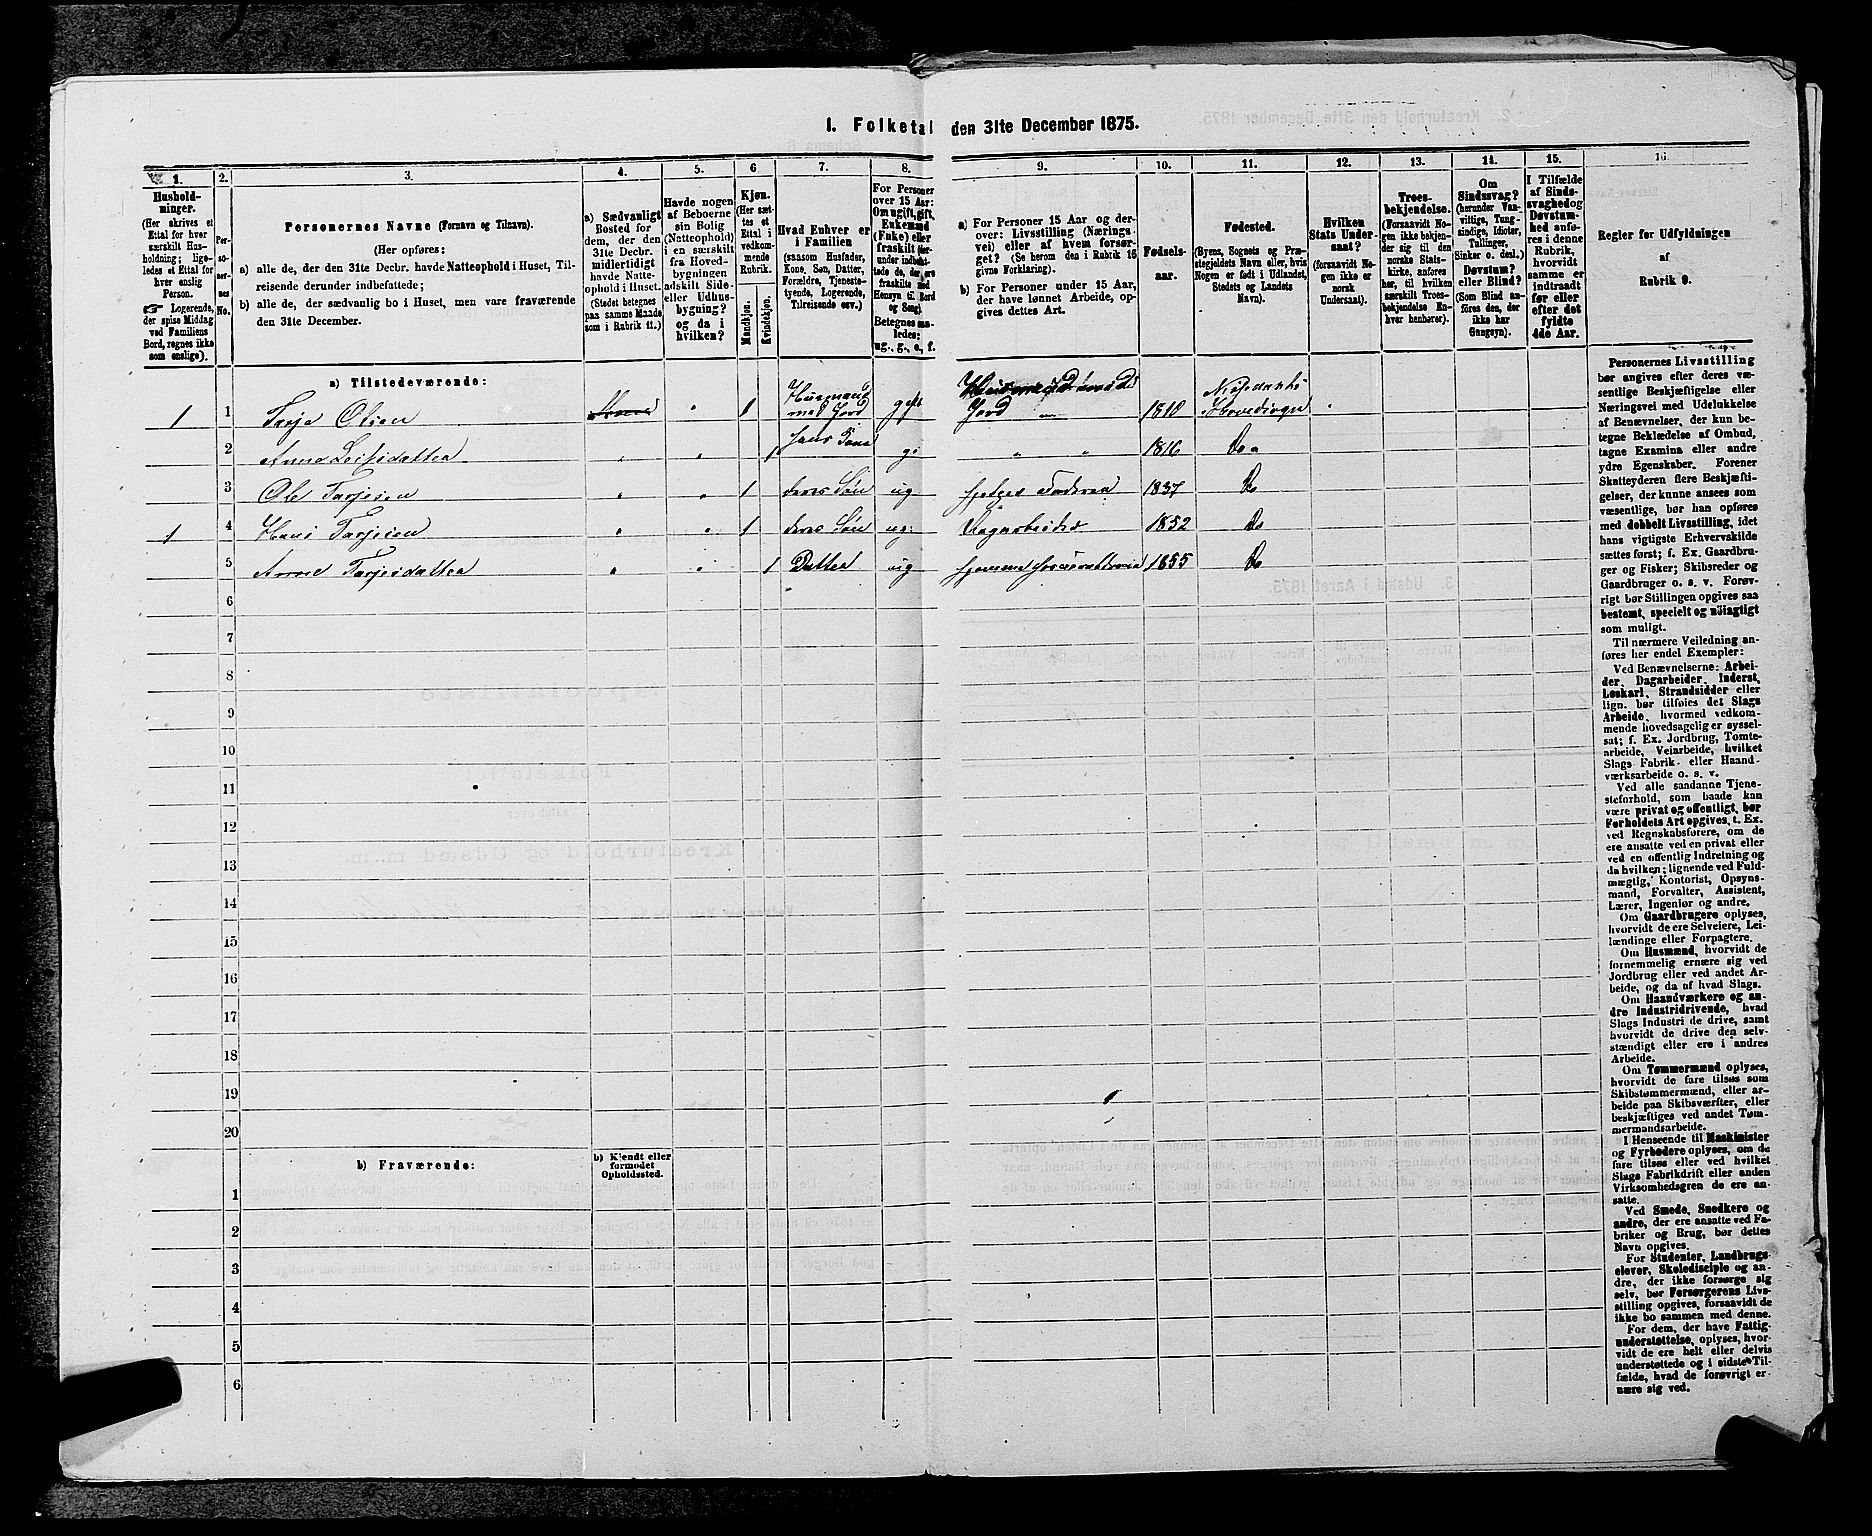 1. Folketal den 31te December 1875.
1.
Hushold-
ninger.
(Her skrives et
Ettal for hver
særskilt Hus-
holdning; lige-
ledes et Ettal for
hver enslig
Person.
☞ Logerende,
der spise Middag
ved Familiens
Bord, regnes ikke
som enslige).
2.
Per-
so-
ner-
nes
No.
3.
Personernes Navne (Fornavn og Tilnavn).
(Her opføres:
a) alle de, der den 31te Decbr. havde Natteophold i Huset, Til-
reisende derunder indbefattede;
b) alle de, der sædvanlig bo i Huset, men vare fraværende
den 31te December.
4.
a) Sædvanligt
Bosted for
dem, der den
31te Decbr.
midlertidigt
havde Natte-
ophold i Huset.
(Stedet betegnes
paa samme Maade
som i Rubrik 11.)
5.
Havde nogen
af Beboerne
sin Bolig
(Natteophold)
i en særskilt
fra Hoved-
bygningen
adskilt Side-
eller Udhus-
bygning?
og da i
hvilken?
6
Kjøn.
(Her sæt-
tes et
Ettal i
vedkom-
mende
Rubrik.
Mandkjøn.
Kvindekjøn.
7.
Hvad Enhver er
i Familien
(saasom Husfader,
Kone, Søn, Datter,
Forældre, Tjeneste-
tyende, Logerende,
Tilreisende osv.)
8.
For Personer
over 15 Aar:
Om ugift, gift,
Enkemand
(Enke) eller
fraskilt
Hensyn til Bord
og Seng).
Betegnes saa-
ledes:
ug., g., e., f.
9.
a) For Personer 15 Aar og der-
over: Livsstilling (Nærings-
vei) eller af hvem forsør-
get? (Se herom den i Rubrik 16
givne Forklaring).
b) For Personer under 15 Aar,
der have lønnet Arbeide, op-
gives dettes Art.
10.
Fødsels-
aar.
11.
Fødested.
(Byens, Sognets og Præ-
stegjeldets Navn eller, hvis
Nogen er født i Udlandet,
Stedets og Landets
Navn).
12.
Hvilken
Stats Under-
saat?
(forsaavidt No-
gen ikke er
norsk
Undersaat).
13.
Troes-
bekjendelse.
(Forsaavidt No-
gen ikke bekjen-
der sig til den
norske Stats-
kirke, anføres
her, til hvilken
særskilt Troes-
bekjendelse En-
hver henhører).
14.
Om
Sindssvag?
(herunder Van-
vittige, Tung-
sindige, Idioter,
Tullinger,
Sinker o. desl.)
Døvstum?
eller Blind?
(Som Blind an-
føres den, der
ikke har
Gangsyn).
15.
I Tilfælde
af Sinds-
svaghed og
Døvstum-
hed anfø-
res i denne
Rubrik,
hvorvidt
samme er
indtraadt
før eller
efter det
fyldte
4de Aar.
16.
Regler for Udfyldningen
af
Rubrik 9.
a) Tilstedeværende:
1 1 Tarje Olsen 1 Husmand med Jord gift Jord 1810
2 Anne Leifsdatter 1 hans Kone g. 1816 Do
3 Ole Tarjesen 1 deres Søn ug hjelper Faderen 1837 Do
1 4 Hans Tarjesen 1 deres Søn ug: Dagarbeider 1852 Do
5 Anne Tarjesdatter 1 Datter ug 1855 Do
6
7
8
9
10
11
12
13
14
15
16
17
18
19
20
b) Fraværende:
b) Kjendt eller
formodet
Opholdssted.
1
2
3
4
5
6
Personernes Livsstilling
bør angives efter deres væ-
sentlige Beskjæftigelse eller
Næringsvei med Udelukkelse
af Benævnelser, der kun be-
tegne Beklædelse af Ombud,
tagne Examina eller andre
ydre Egenskaber. Forener
Skatteyderen flere Beskjæfti-
gelser, der kunne ansees som
væsentlige, bør han opføres
med dobbelt Livsstilling, idet
hans vigtigste Erhvervskilde
sættes først; f. Ex. Gaardbru-
ger og Fisker; Skibsreder og
Gaardbruger o. s. v. Forøv-
rigt bør Stillingen opgives saa
bestemt, specielt og nöiagtigt
som muligt.
Til nærmere Veiledning an-
føres her endel Exempler:
Ved Benævnelserne: Arbei-
der, Dagarbeider, Inderst,
Løskarl, Strandsidder eller
lign. bør tilføies det Slags
Arbeide, hvormed vedkom-
mende hovedsagelig er syssel-
sat; f. Ex. Jordbrug, Tomte-
arbeide, Veiarbeide, hvilket
Slags Fabrik- eller Haand-
værksarbeide o. s. v.
Ved alle saadanne Tjene-
steforhold, som baade kan
være privat og offentligt, bør
Forholdets Art opgives, t. Ex.
ved Regnskabsførere, om de
ere ansatte ved en privat eller
ved en offentlig Indretning og
da hvilken; lignende ved Fuld-
mægtig, Kontorist, Opsyns-
mand, Forvalter, Assistent,
Lærer, Ingeniør og andre.
Om Gaardbrugere oplyses,
hvorvidt de ere Selveiere, Lei-
lændinge eller Forpagtere.
Om Husmænd, hvorvidt de
fornemmelig ernære sig ved
Jordbrug eller ved andet Ar-
beide, og da af hvad Slags.
Om Haandværkere og an-
dre Industridrivende, hvad
Slags Industri de drive, samt
hvorvidt de drive den selv-
stændigt eller ere i andres
Arbeide.
Om Tømmermænd oplyses,
hvorvidt de fare tilsøs som
Skibstømmermænd, eller ar-
beide paa Skibsværfter, eller
beskjæftiges ved andet Tøm-
mermandsarbeide.
I Henseende til Maskinister
og Fyrbødere oplyses, om de
fare tilsøs eller ved hvilket
Slags Fabrikdrift eller anden
Virksomhedsgren de ere an-
satte.
Ved Smede, Snedkere og
andre, der ere ansatte ved Fa-
briker og Brug, bør dettes
Navn opgives.
For Studenter, Landbrugs-
elever, Skoledisciple og an-
dre, der ikke forsørge sig
selv, bør Forsørgerens Livs-
stilling opgives, forsaavidt de
ikke bo sammen med denne.
For dem, der have Fattig-
understøttelse, oplyses, hvor-
vidt de ere helt eller delvis
understøttede og i sidste Til-
fælde, hvad de forøvrigt er-
nære sig ved.